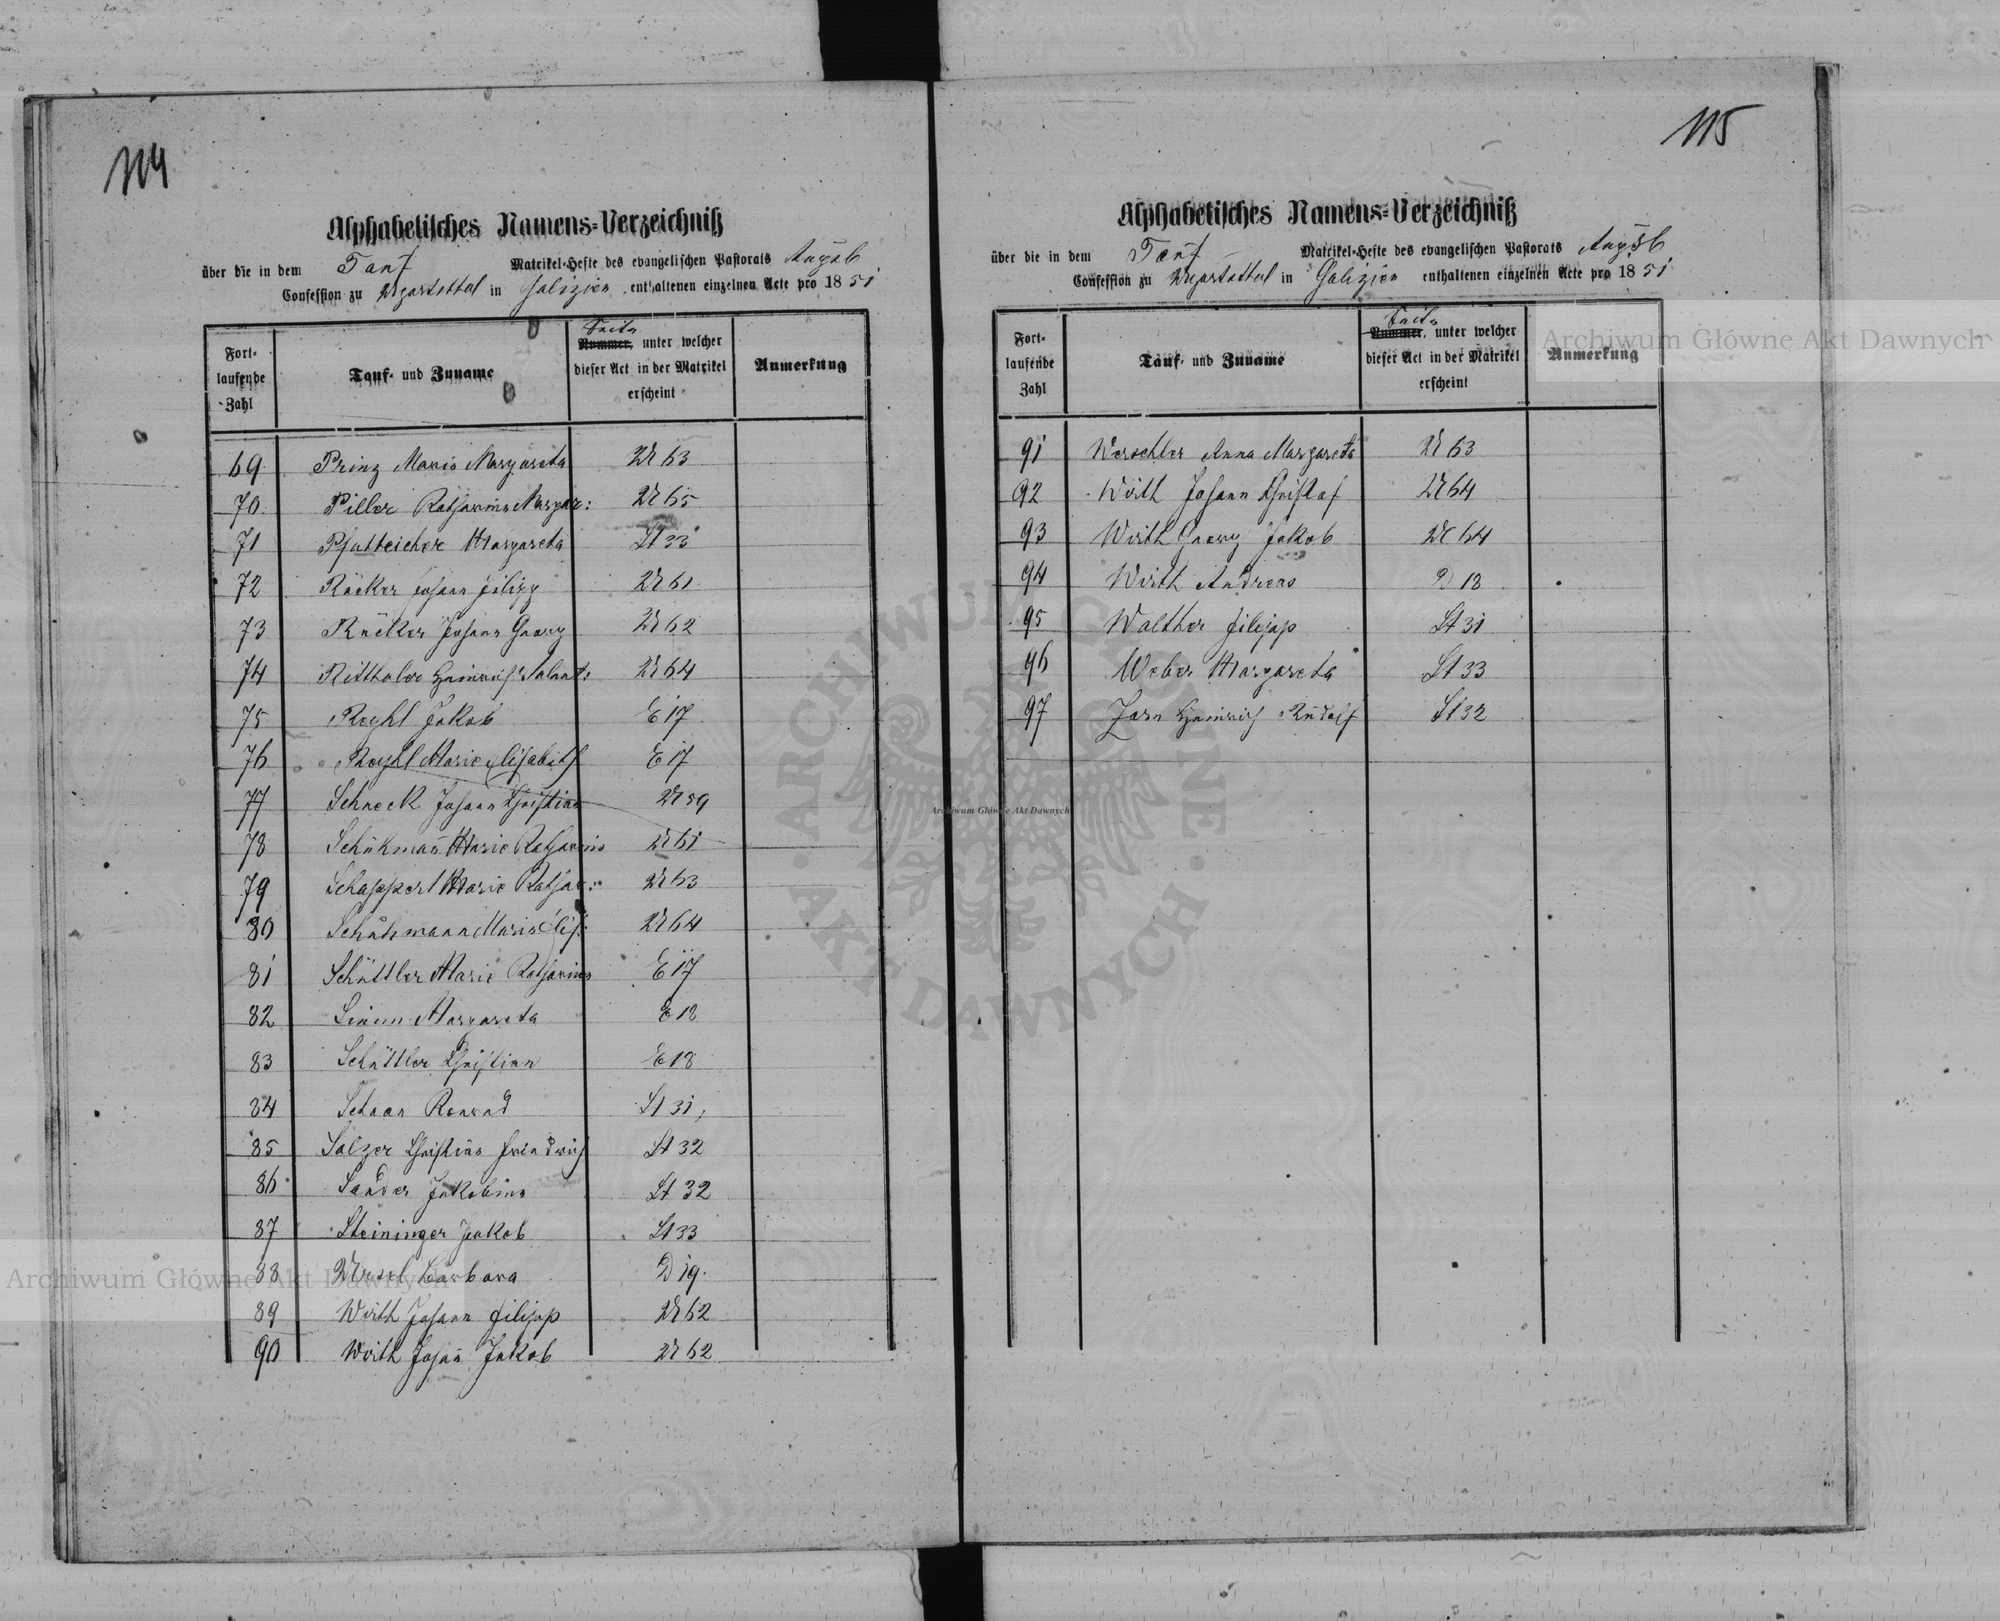 114
Alphabetisches Namens-Verzeichniß
über die in dem Tauf Matrikel-Hefte des evangelischen Pastorats Augsb
Confession zu Ugartsthal in Galizien enthaltenen einzelnen Acte pro 1851
Fort-
laufende
Zahl
Tauf- und Zuname
Seite
Nummer, unter welcher
dieser Act in der Matrikel
erscheint
Anmerkung
69 Prinz Maria Margareta U 63
70 Piller Katharina Margar: U 65
71 Pfatteicher Margareta St 33
72 Rücker Johann Filipp U 61
73 Johann Georg U 62
74 Ritthaler Heinrich U 64
75 Reyhl Jakob E 17
76 Reyhl Marie Elisabeth E 17
77 Schneck Johann Christian U 59
78 Marie Katharina U 61
79 Schappert Marie Kathar: U 63
80 Maria Elis: U 64
81 Schüttler Marie Katharina E 17
82 Margareta E 18
83 Schüttler Christian E 18
84 Schaar Konrad St 31,
85 Salzer Christina Friedrich St 32
86 Sander Jakobina St 32
87 Steininger Jakob St 33
88 Barbara D 19.
89 Wirth Johann Filipp U 62
90 Wirth Johan̄ Jakob U 62
115
Alphabetisches Namens-Verzeichniß
über die in dem Tauf Matrikel-Hefte des evangelischen Pastorats Augsb
Confession zu Ugartsthal in Galizien enthaltenen einzelnen Acte pro 1851
Fort-
laufende
Zahl
Tauf- und Zuname
Seite
Nummer, unter welcher
dieser Act in der Matrikel
erscheint
Anmerkung
91 Werschler Anna Margareta U 63
92 Wirth Johann Christof U 64
93 Wirth Georg Jakob U 64
94 Wirth Andreas D 18
95 Walther Filipp St 31
96 Weber Margareta St 33
97 Zorn Heinrich Rudolf St 32
Archiwum Główne Akt Dawnych
Archiwum Główne Akt Dawnych
Archiwum Główne Akt Dawnych
ARCHIWUM GŁÓWNE · AKT DAWNYCH ·